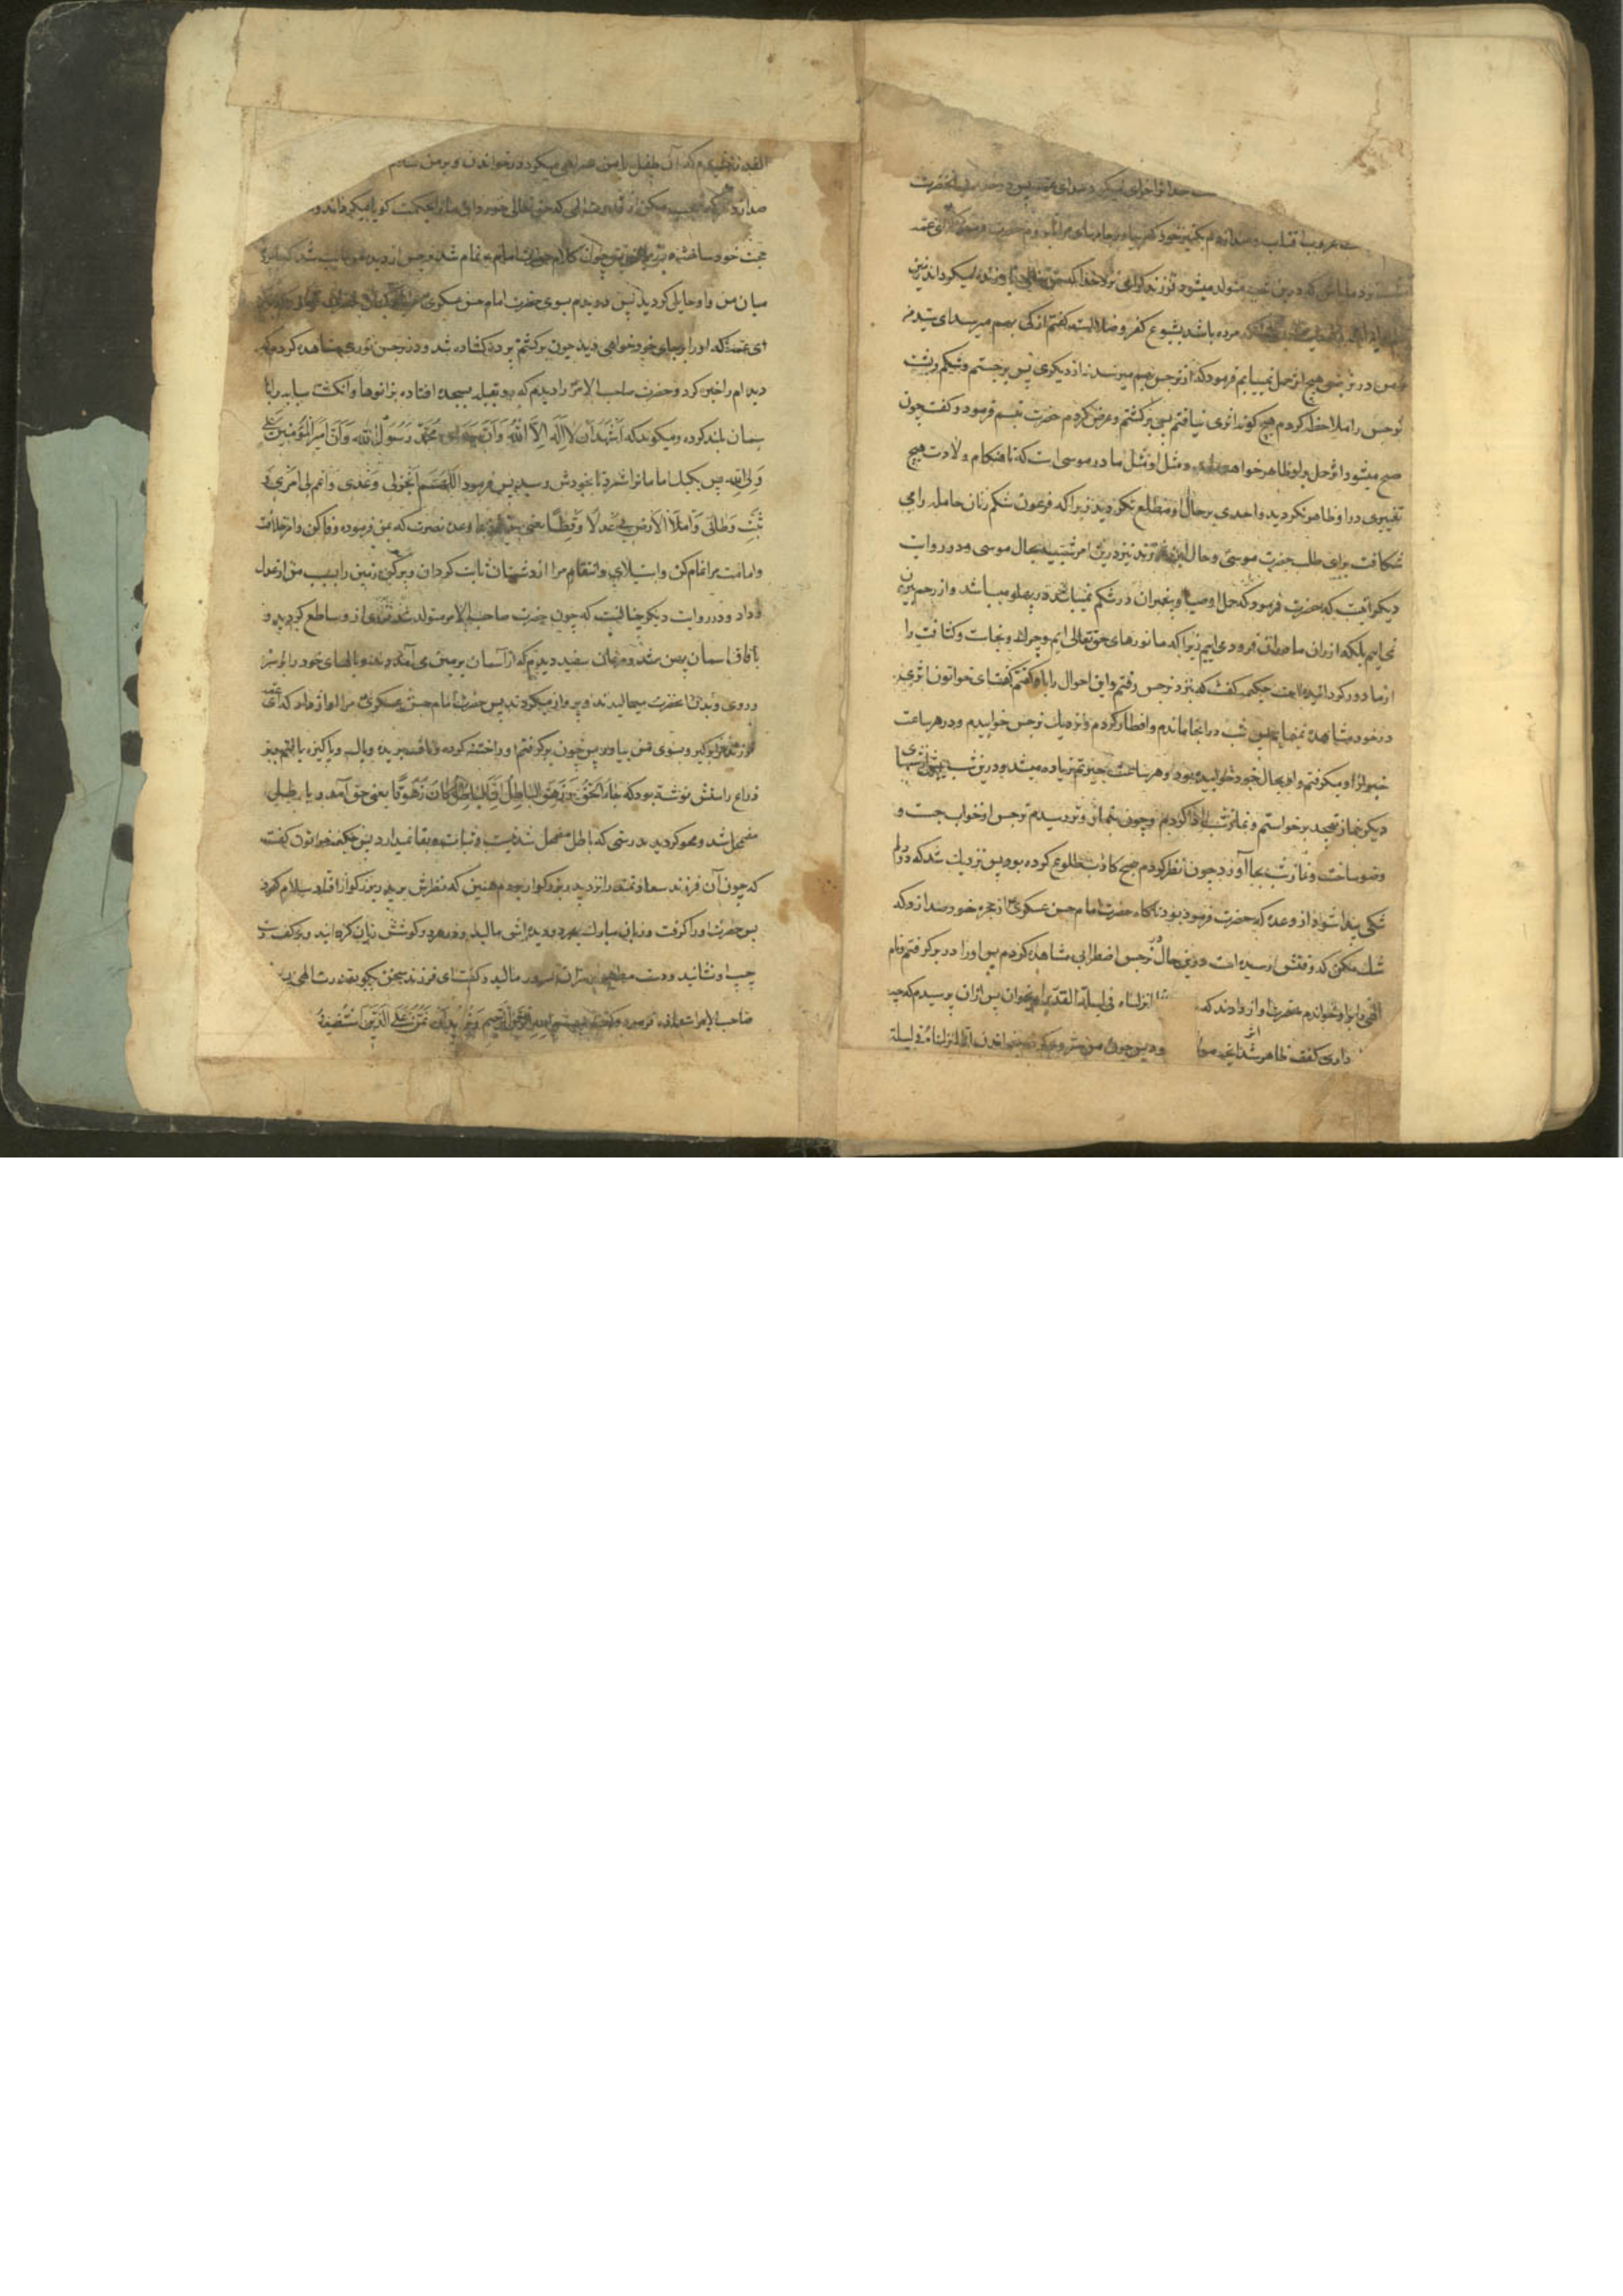 حضرت
غروب آفتاب صدا زدم کنیز خود که بیاور جامهای مرا تا بروم حضرت فرمود ای عمه
امشب نزد ما باش که درین شب متولد میشود فرزند گرامی نزد خدا که حق تعالی باو زنده میگرداند زمین
مرده باشد بشیوع کفر و ضلالت گفتم از کی بهم میرسد ای سید من
و من در نرجس هیچ اثر حمل نمییابم فرمود که از نرجس بهم میرسد نه از دیگری پس برجستم و شکم و پشت
نرجس را ملاحظه کردم هیچ گونه اثری نیافتم پس برگشتم و عرض کردم حضرت تبسم فرمود و گفت چون
صبح میشود اثر حمل برو ظاهر خواهد و مثل او مثل مادر موسی است که تا هنگام ولادت هیچ
تغییری در او ظاهر نگردید و احدی بر حال او مطلع نگردید زیرا که فرعون شکم زنان حامله را می
شکافت برای طلب حضرت موسی و حال این فرزند نیز درین امر شبیه بحال موسی و در روایت
دیگر آنست که حضرت فرمود که حمل اوصیاء پیغمبران در شکم نمیباشد در پهلو میباشد و از رحم بیرون
نمی‌ایم بلکه از ران مادران فرود می‌اییم زیرا که ما نورهای حق تعالی ایم و چرک و نجاست و کثافت را
از ما دور گردانیده است حکیمه گفت که نزد نرجس رفتم و این احوال را باو گفتم گفت ای خواتون اثری
در خود مشاهده نمینمایم پس شب در انجا ماندم و افطار کردم و نزدیک نرجس خوابیدم و در هر ساعت
خبر از او میگرفتم و او بحال خود خوابیده بود و هر ساعت حیرتم زیاده میشد و درین شب بیش از شبهای
دیگر بنماز تهجد برخواستم و نماز شب ادا کردم و چون بنماز وتر رسیدم نرجس از خواب جست و
وضو ساخت و نماز شب بجا آورد چون نظر کردم صبح کاذب طلوع کرده بود پس نزدیک شد که در دلم
شکی پیدا شود از وعده که حضرت فرموده بود ناگاه حضرت امام حسن عسکری از حجره خود صدا زد که
شک مکن که وقتش رسیده است درین حال در نرجس اضطرابی مشاهده کردم پس او را در بر گرفتم و نام
الهی را برو خواندم حضرت اواز دادند که انا انزلناه فی لیلة القدر برو بخوان پس ازان پرسیدم که چه
داری گفت ظاهر شد اثر انچه مولا و پس چون من شروع کردم بخواندن انا انزلناه فی لیلة
القدر شنیدم که آن طفل با من همراهی میکرد در خواندن و بر من سلام
صدا زد که تعجب مکن از قدرت الهی که حق تعالی خوردان ما را بحکمت گویا میگرداند و
حجت خود ساخته پس چون کلام حضرت امام تمام شد نرجس از دیده من غایب شد گویا پرده
میان من و او حایل گردید پس دویدم بسوی حضرت امام حسن عسکری
ای عمه که او را بر جای خود خواهی دید چون برگشتم پرده گشاده شد و در نرجس نوری مشاهده کردم که
دیده ام را خیره کرد و حضرت صاحب الامر را دیدم که رو بقبله بسجده افتاده بزانوها و انگشت سبابه را با
سمان بلند کرده و میگوید که اَشْهَدُ اَنْ لا اِلهَ اِلَّا اللهُ وَ اَنَّ جدی مُحَمَّدٌ رَسُولُ اللهِ وَ اَنَّ اَمیرَ الْمُؤْمِنینَ علی
وَلِیُّ اللهِ پس یک یک امامانرا شمرد تا بخودش رسید پس فرمود اَللّهُمَّ اَنْجِزْ لی وَعْدی وَ اَتْمِمْ لی اَمْری وَ
ثَبِّتْ وَطْأَتی وَ امْلَأِ الْاَرْضَ بی عَدْلًا وَ قِسْطًا یعنی وعده نصرت که بمن فرموده وفا کن و امر خلافت
و امامت مرا تمام کن و استیلای و انتقام مرا از دشمنان ثابت گردان و پر کن زمین را بسبب من از عدل
و داد و در روایت دیگر چنانست که چون حضرت صاحب الامر متولد شد نوری از و ساطع گردید و
بافاق اسمان پهن شد و مرغان سفید دیدم که از آسمان بزمین می آمدند و بالهای خود را بر سر
و روی و بدن انحضرت میمالیدند و پرواز میکردند پس حضرت امام حسن عسکری مرا اواز داد که ای عمه
فرزند مرا برگیر و بسوی من بیاور پس چون برگرفتم او را ختنه کرده و ناف بریده و پاک و پاکیزه یافتم و بر
ذراع راستش نوشته بود که جاءَ الْحَقُّ وَ زَهَقَ الْباطِلُ اِنَّ الْباطِلَ کانَ زَهُوقًا یعنی حق آمد و باطل
مضمحل شد و محو گردید بدرستی که باطل مضمحل شدنیست و ثبات و بقا نمیدارد پس حکیمه خواتون گفت
که چون آن فرزند سعادتمند را نزد پدر بزرگوار بردم همین که نظرش بر پدر بزرگوار افتاد سلام کرد
پس حضرت او را گرفت و زبان مبارک بر دو دیده اش مالید و در هر دو گوشش زبان گردانید و بر کف دست
چپ او نشانید و دست مطهر بر سر ان سرور مالید و گفت ای فرزند سخن بگو بقدرت الهی پس
صاحب الامر استعاذه فرمود و گفت بسم الله الرحمن الرحیم وَ نُریدُ اَنْ نَمُنَّ عَلَی الَّذینَ اسْتُضْعِفُوا